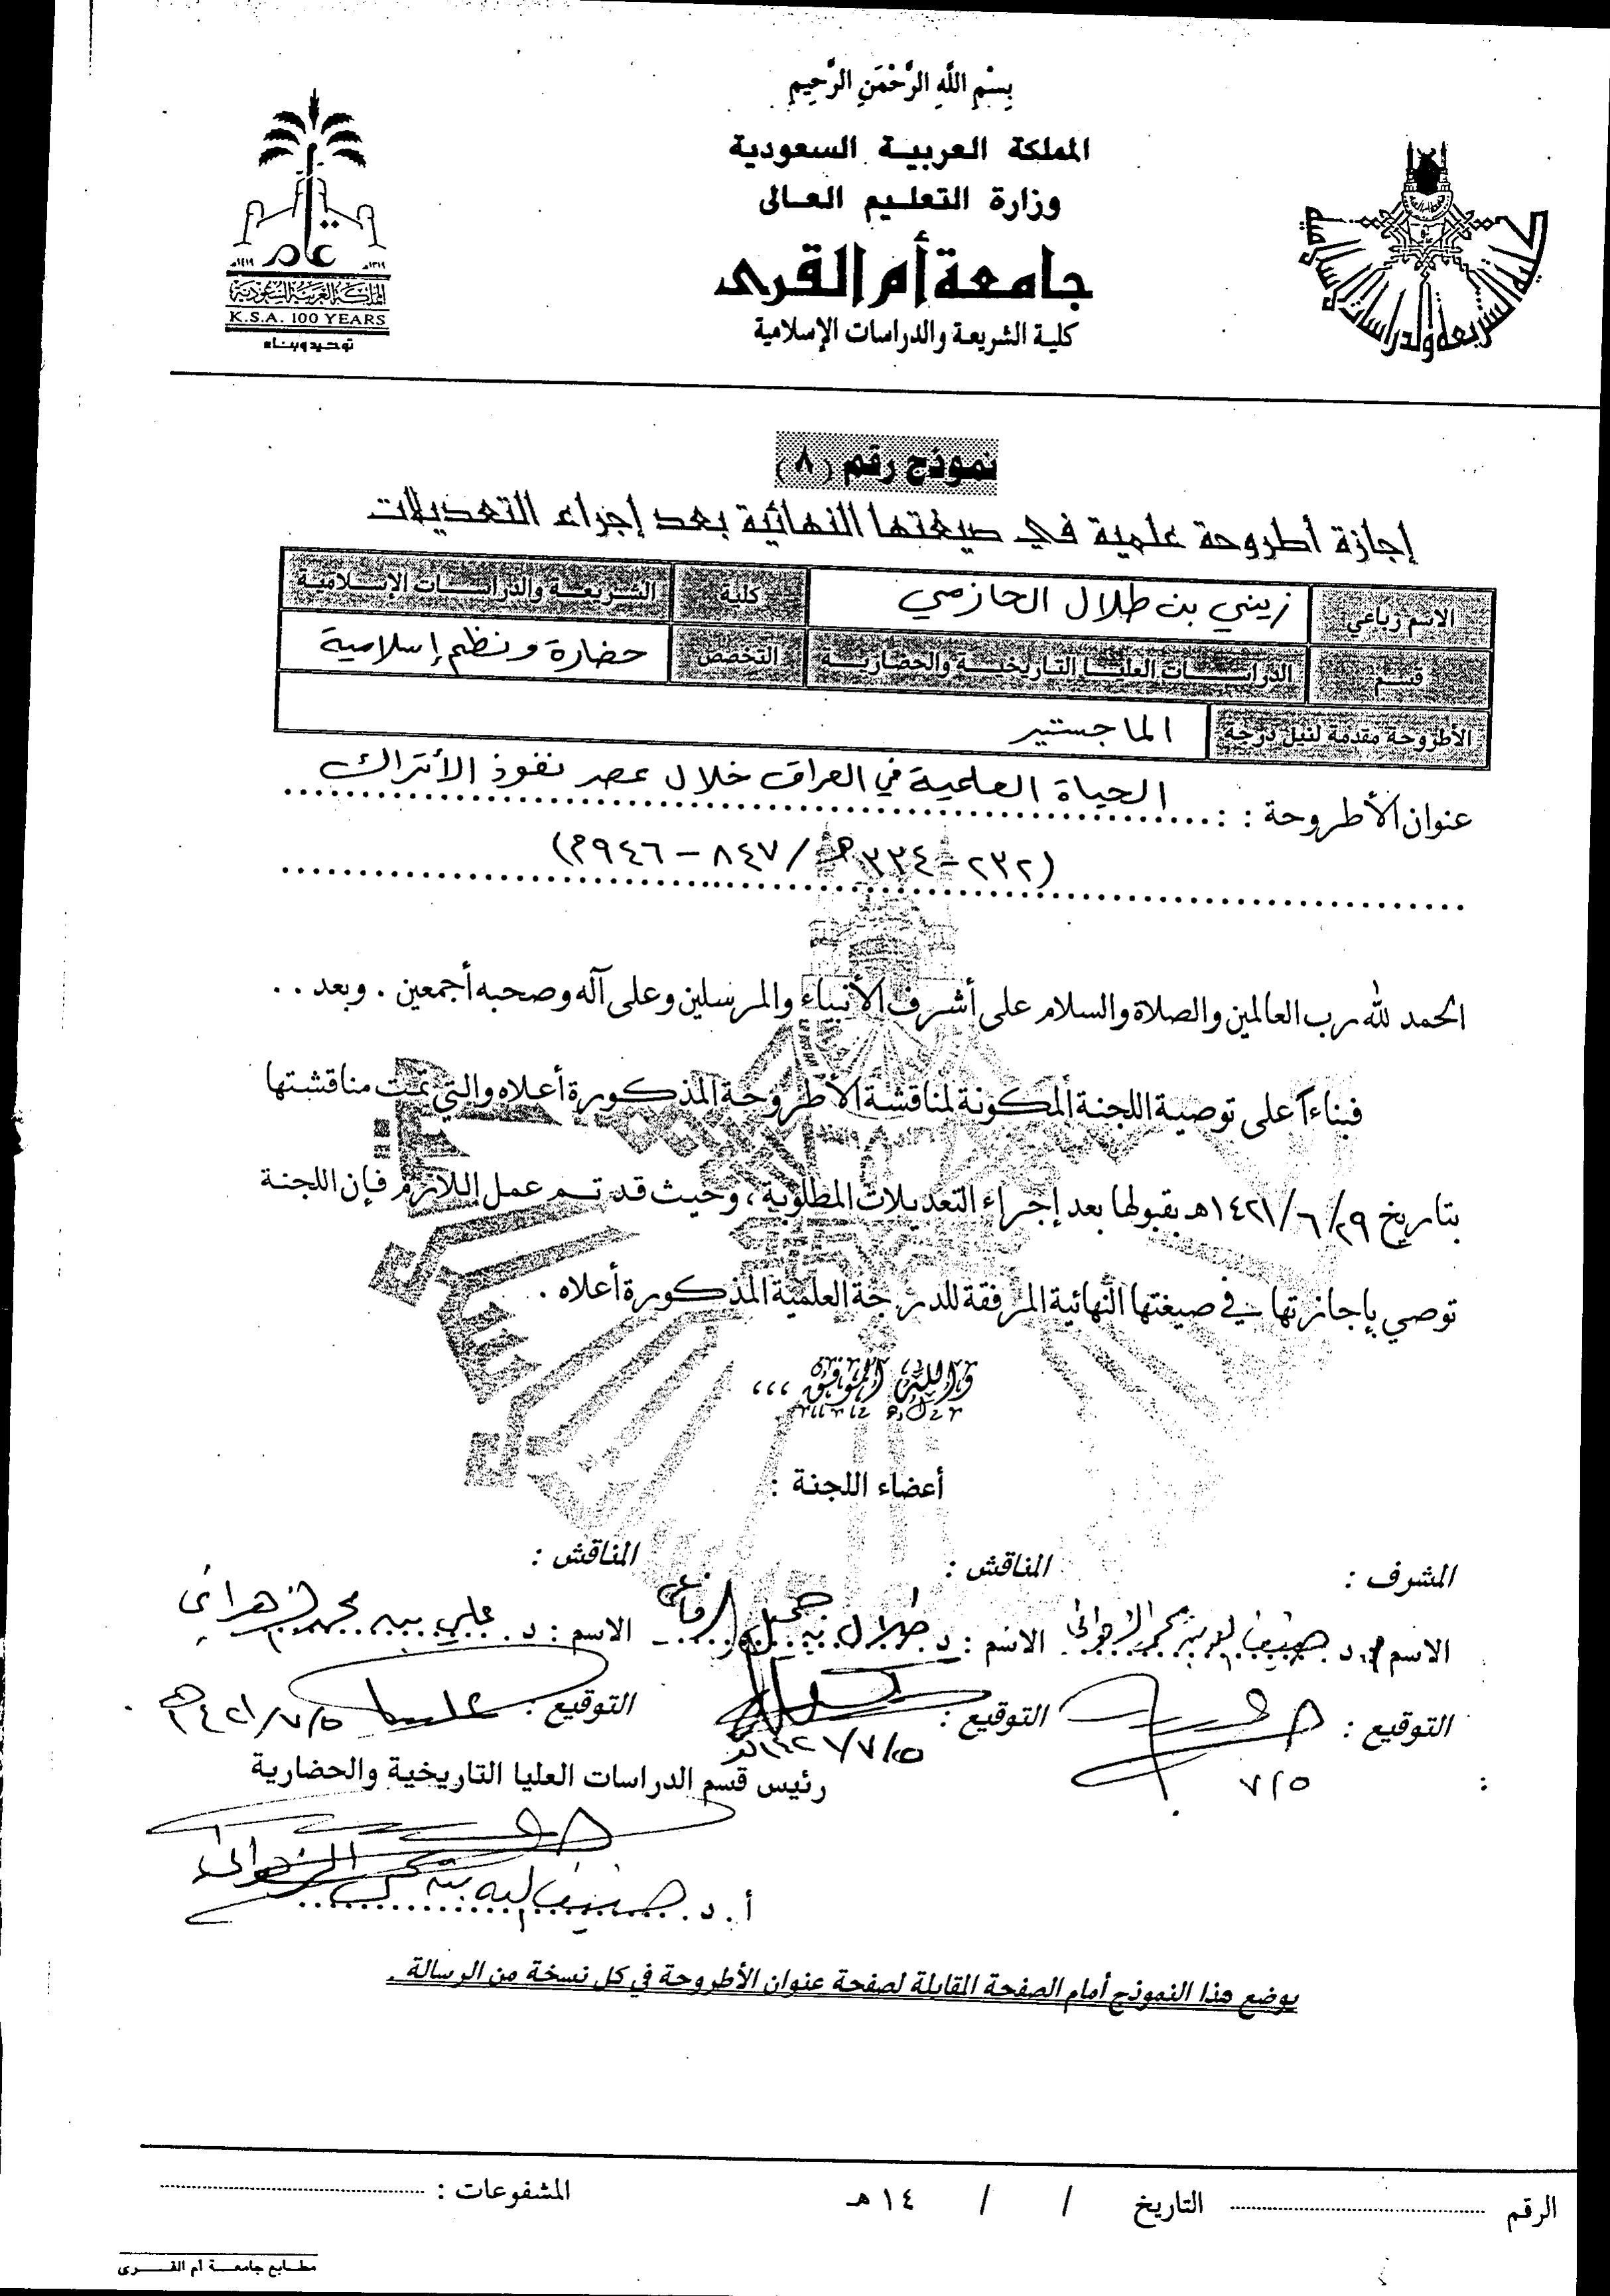 بِسْمِ اللَّهِ الرَّحْمَنِ الرَّحِيمِ
المملكة العربية السعودية
وزارة التعليم العالى
جامعة أم القرى
كلية الشريعة والدراسات الإسلامية
عام
١٣١٩هـ ١٤١٩هـ
المملكة العربية السعودية
K.S.A. 100 YEARS
توحيد وبناء
نموذج رقم (٨)
إجازة أطروحة علمية في صيغتها النهائية بعد إجراء التعديلات
الاسم رباعي زيني بن طلال الحازمي كلية الشريعة والدراسات الإسلامية
قسم الدراسات العليا التاريخية والحضارية التخصص حضارة ونظم إسلامية
الأطروحة مقدمة لنيل درجة الماجستير
عنوان الأطروحة : : الحياة العلمية في العراق خلال عصر نفوذ الأتراك
(٢٣٢-٣٣٤هـ/٨٤٧-٩٤٦م)
الحمد لله رب العالمين والصلاة والسلام على أشرف الأنبياء والمرسلين وعلى آله وصحبه أجمعين . وبعد ..
فبناءاً على توصية اللجنة المكونة لمناقشة الأطروحة المذكورة أعلاه والتي تمت مناقشتها
بتاريخ ٢٩/٦/١٤٢١هـ بقبولها بعد إجراء التعديلات المطلوبة ، وحيث قد تم عمل اللازم فإن اللجنة
توصي بإجازتها في صيغتها النهائية المرفقة للدرجة العلمية المذكورة أعلاه .
والله الموفق ،،،
أعضاء اللجنة :
المشرف : المناقش : المناقش :
الاسم : د. ضيف الله بن محمد الزهراني الاسم : د. طلال بن جميل الرفاعي الاسم : د. علي بن محمد الزهراني
التوقيع : التوقيع : التوقيع :
٧/٥ ١٤٢١/٧/٥هـ ١٤٢١/٧/٥هـ
رئيس قسم الدراسات العليا التاريخية والحضارية
أ. د. ضيف الله بن يحيى الزهراني
يوضع هذا النموذج أمام الصفحة المقابلة لصفحة عنوان الأطروحة في كل نسخة من الرسالة .
الرقم التاريخ / / ١٤هـ المشفوعات :
مطابع جامعة أم القرى